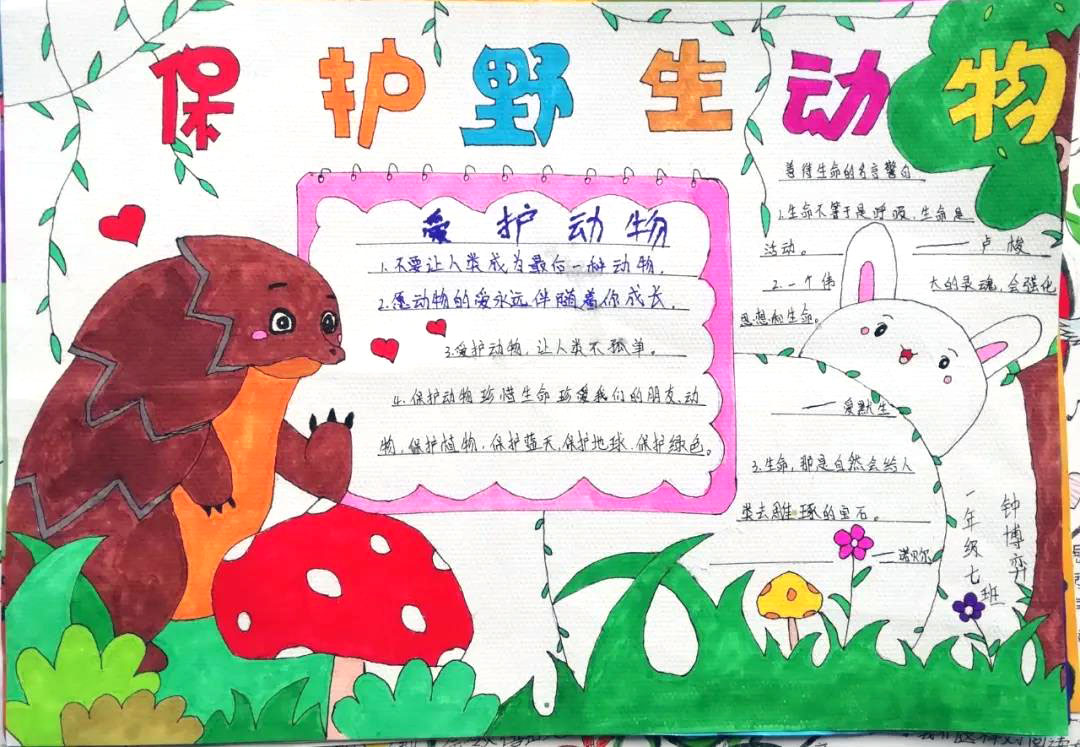 保护野生动物
爱护动物
1.不要让人类成为最后一种动物。
2.愿动物的爱永远伴随着你成长。
3.爱护动物,让人类不孤单。
4.保护动物珍惜生命珍爱我们的朋友、动
物,保护植物,保护蓝天,保护地球,保护绿色。
善待生命的名言警句
1.生命不等于是呼吸,生命是
活动。——卢梭
2.一个伟大的灵魂,会强化
思想和生命。
——爱默生
3.生命,那是自然会给人
类去雕琢的宝石。
——诺贝尔
一年级七班
钟博弈